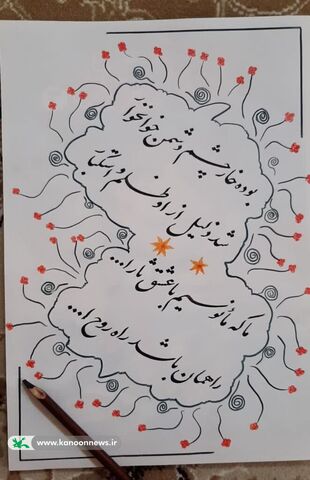 بوده خار چشم دشمن خونخوار
شد ذلیل از او ظلم و استکبار
ما که مأنوسیم با عشق ثارا...
راهمان باشد راه روح ا...
www.kanoonnews.ir